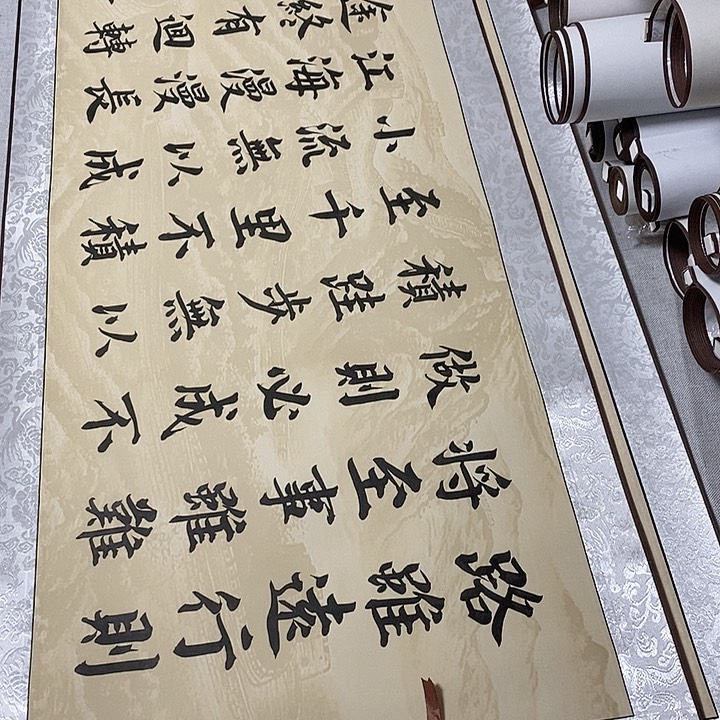 路雖遠行則
將至事雖難
做則必成不
積跬步無以
至千里不積
小流無以成
江海漫漫長
途終有迴轉